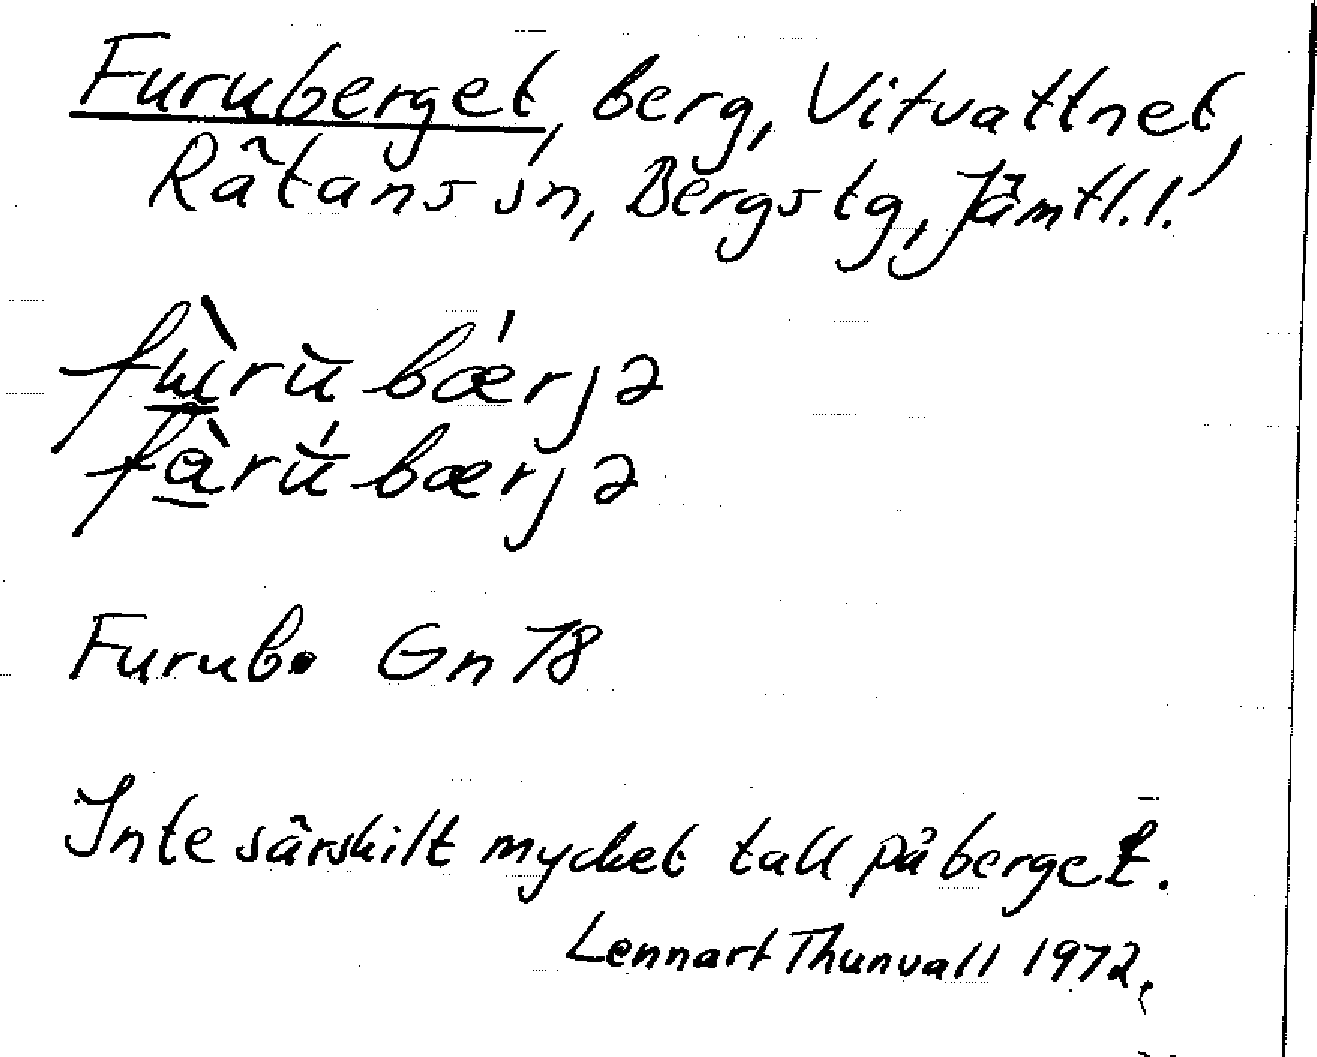 Furuberget, berg, Vitvattnet,
Rätans sn, Bergs tg, Jämtl.l.
fɯ̀rŭ bǽrjə
fàrŭ́ bærjə
Furub. Gn 78
Inte särskilt mycket tall på berget.
Lennart Thunvall 1972.